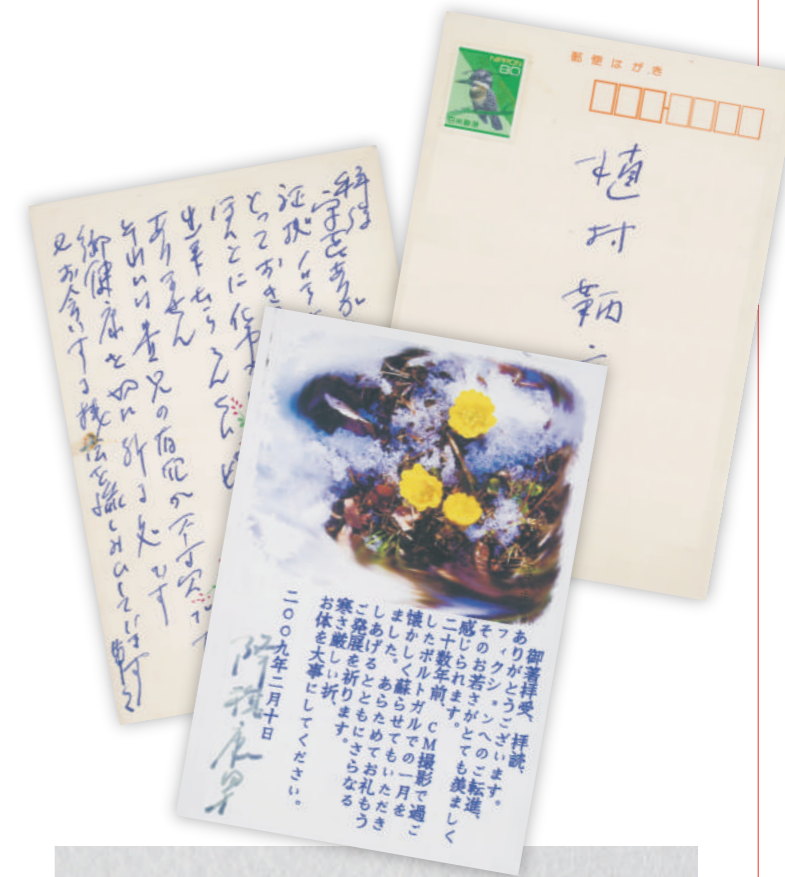 NIPPON
80
日本郵便
郵便はがき
植村鞆
写真ありが
とっておき
ほんとに仕事
ありません
貴兄の存在が不可欠です
御健康を切に祈る処です
又お会いする機会を楽しみにしています
御著拝受、拝読、
ありがとうございます。
フィクションへのご転進、
そのお若さがとても羨ましく
感じられます。
二十数年前、CM撮影で過ご
したポルトガルでの一月を
懐かしく蘇らせてもいただき
ました。あらためてお礼もう
しあげるとともにさらなる
ご発展を祈ります。
寒さ厳しい折、
お体を大事にしてください。
二〇〇九年二月十日